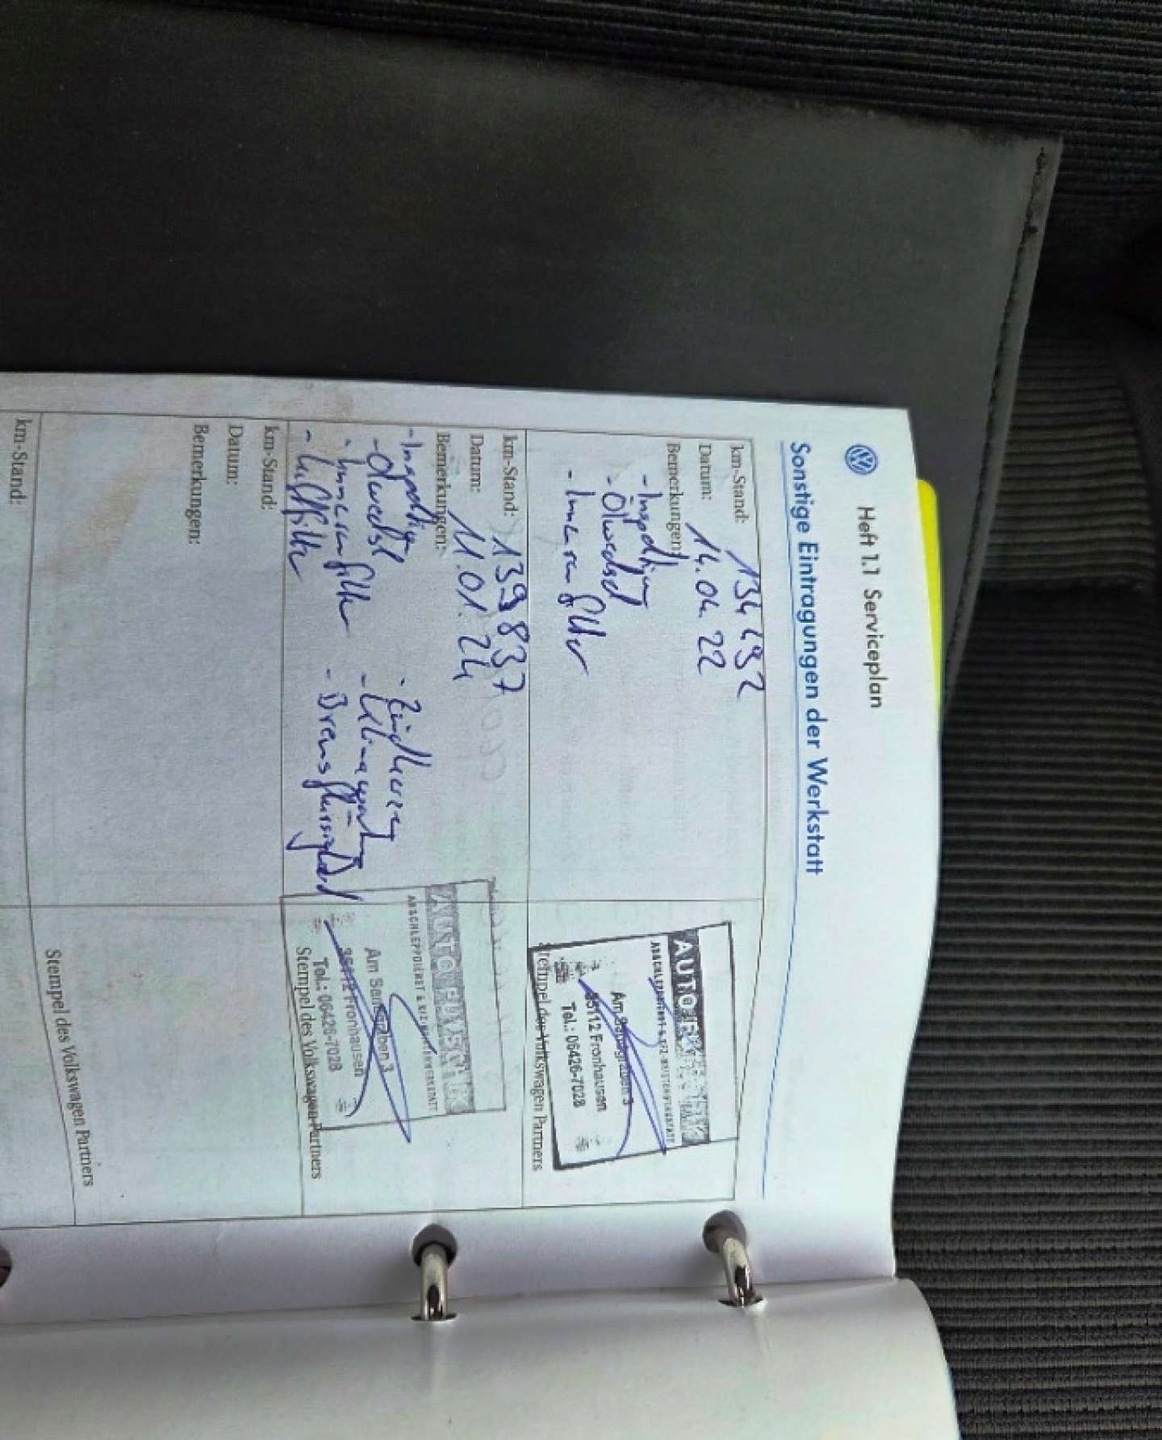 Heft 1.1 Serviceplan
Sonstige Eintragungen der Werkstatt
km-Stand: 134 492
Datum: 14.04.22
Bemerkungen:
- Inspektion
- Ölwechsel
- Innenraumfilter
AUTO
ABSCHLEPPDIENST & KFZ-MEISTERWERKSTATT
Am 3
35112 Fronhausen
Tel.: 06426-7028
Stempel des Volkswagen Partners
km-Stand: 139 837
Datum: 11.01.24
Bemerkungen:
- Inspektion
- Ölwechsel
- Innenraumfilter
- Luftfilter
- Zündkerzen
- Klimawartung
- Bremsflüssigkeit
AUTO
ABSCHLEPPDIENST & KFZ-MEISTERWERKSTATT
Am 3
35112 Fronhausen
Tel.: 06426-7028
Stempel des Volkswagen Partners
km-Stand:
Datum:
Bemerkungen:
Stempel des Volkswagen Partners
km-Stand: